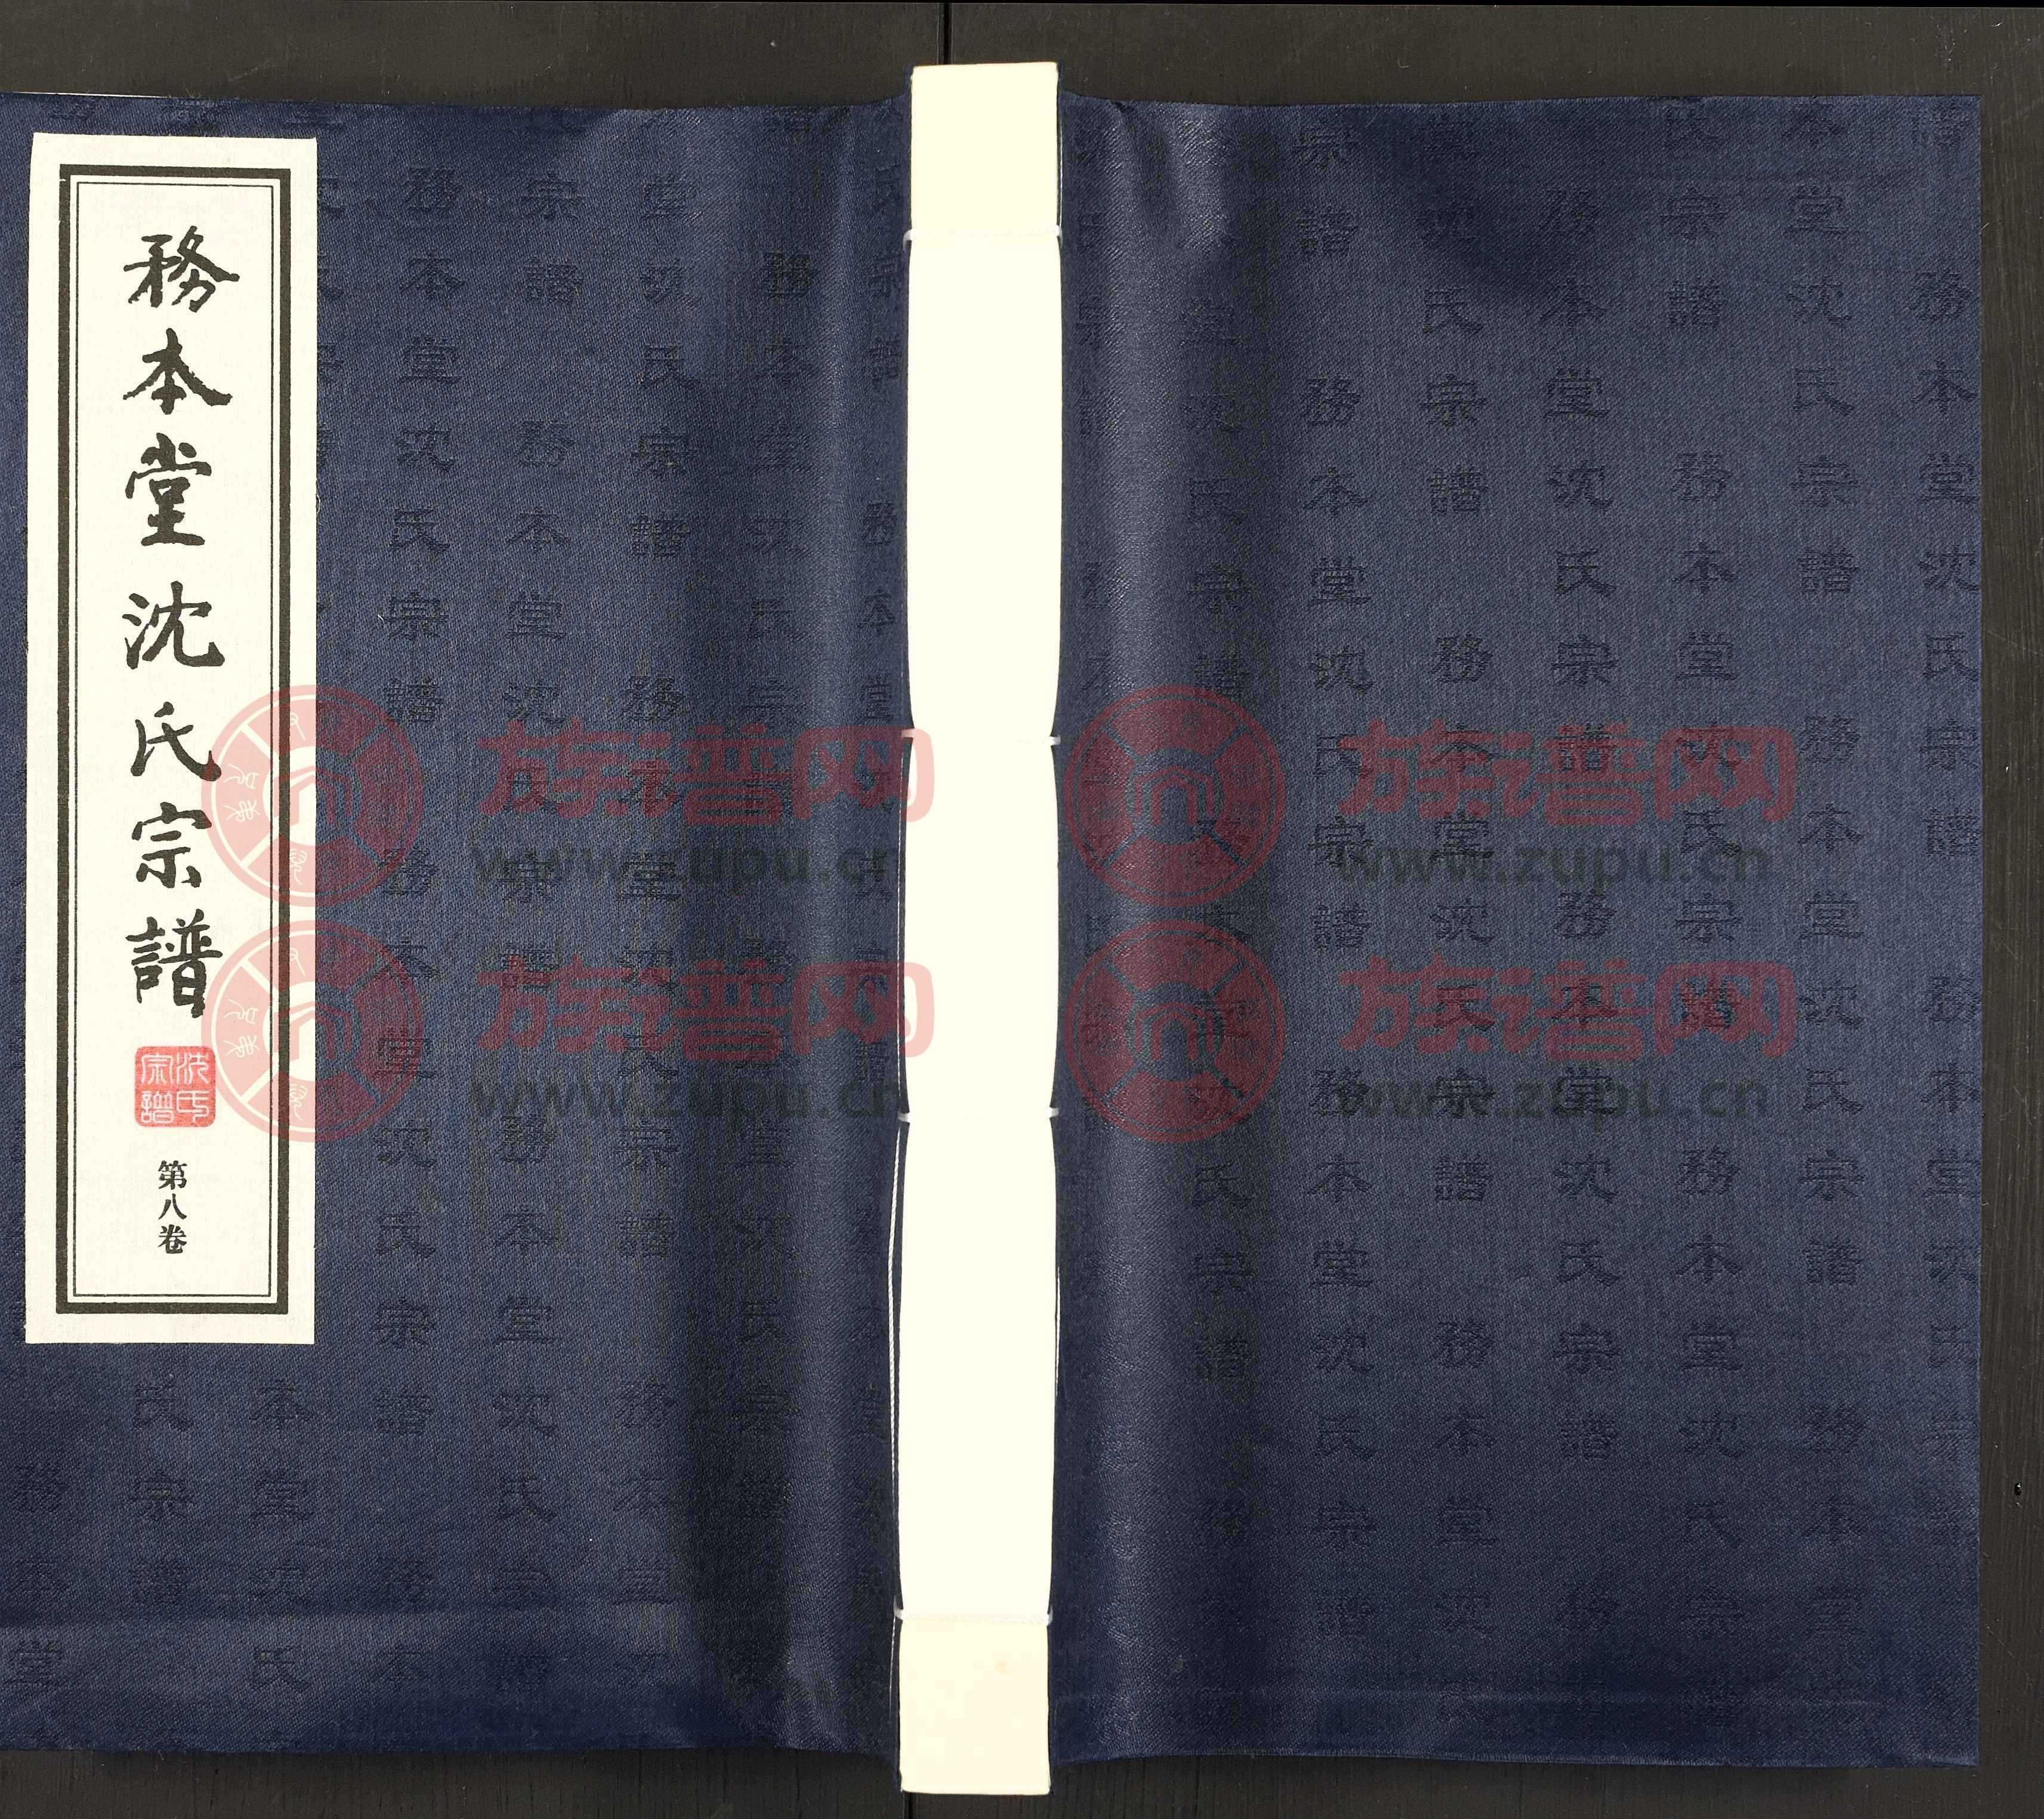 務本堂沈氏宗譜
沈氏宗譜
第八卷
族谱网
www.zupu.cn
族谱网
www.zupu.cn
族谱网
www.zupu.cn
族谱网
www.zupu.cn
務本堂沈氏宗譜